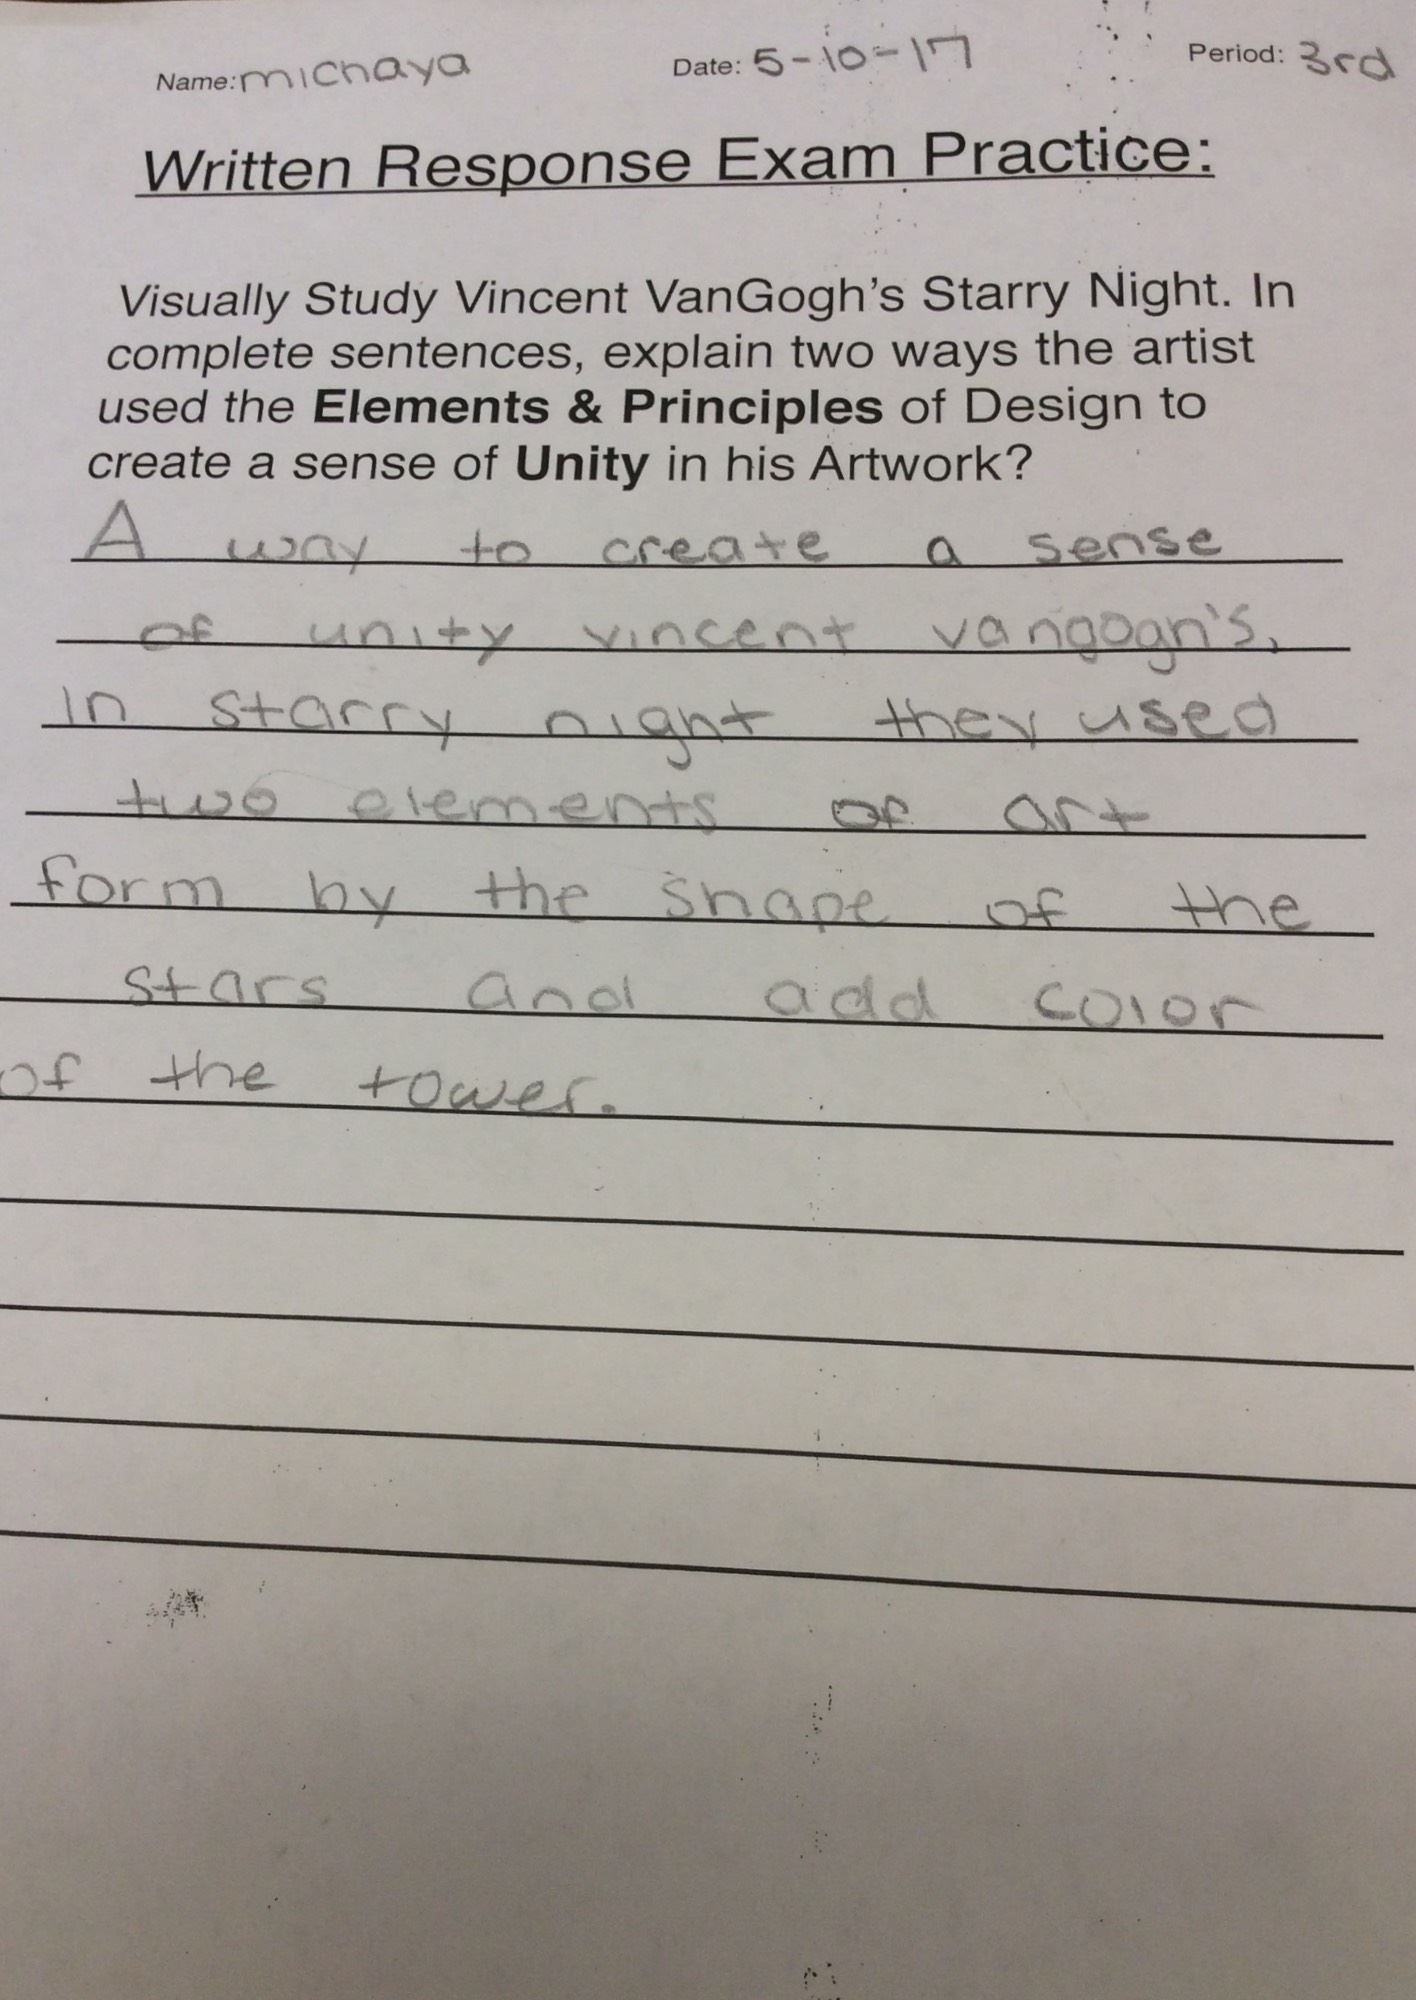 Name: michaya Date: 5-10-17 Period: 3rd
Written Response Exam Practice:
Visually Study Vincent VanGogh's Starry Night. In
complete sentences, explain two ways the artist
used the Elements & Principles of Design to
create a sense of Unity in his Artwork?
A way to create a sense
of unity vincent vangogh's,
in starry night they used
two elements of art
form by the shape of the
stars and add color
of the tower.